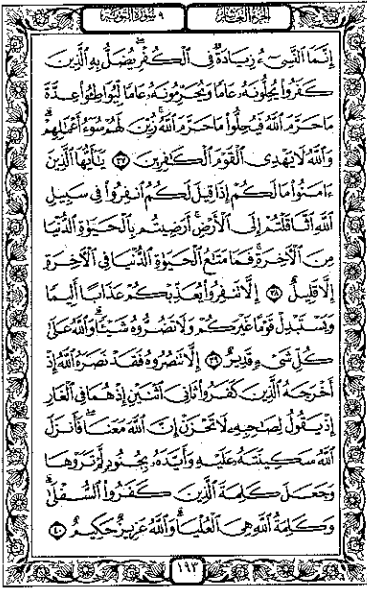 الجزء العاشر
٩ سورة التوبة
إِنَّمَا ٱلنَّسِىٓءُ زِيَادَةٌ فِى ٱلْكُفْرِ ۖ يُضَلُّ بِهِ ٱلَّذِينَ
كَفَرُوا۟ يُحِلُّونَهُۥ عَامًا وَيُحَرِّمُونَهُۥ عَامًا لِّيُوَاطِـُٔوا۟ عِدَّةَ
مَا حَرَّمَ ٱللَّهُ فَيُحِلُّوا۟ مَا حَرَّمَ ٱللَّهُ ۚ زُيِّنَ لَهُمْ سُوٓءُ أَعْمَـٰلِهِمْ ۗ
وَٱللَّهُ لَا يَهْدِى ٱلْقَوْمَ ٱلْكَـٰفِرِينَ ٣٧ يَـٰٓأَيُّهَا ٱلَّذِينَ
ءَامَنُوا۟ مَا لَكُمْ إِذَا قِيلَ لَكُمُ ٱنفِرُوا۟ فِى سَبِيلِ
ٱللَّهِ ٱثَّاقَلْتُمْ إِلَى ٱلْأَرْضِ ۚ أَرَضِيتُم بِٱلْحَيَوٰةِ ٱلدُّنْيَا
مِنَ ٱلْـَٔاخِرَةِ ۚ فَمَا مَتَـٰعُ ٱلْحَيَوٰةِ ٱلدُّنْيَا فِى ٱلْـَٔاخِرَةِ
إِلَّا قَلِيلٌ ٣٨ إِلَّا تَنفِرُوا۟ يُعَذِّبْكُمْ عَذَابًا أَلِيمًا
وَيَسْتَبْدِلْ قَوْمًا غَيْرَكُمْ وَلَا تَضُرُّوهُ شَيْـًٔا ۗ وَٱللَّهُ عَلَىٰ
كُلِّ شَىْءٍ قَدِيرٌ ٣٩ إِلَّا تَنصُرُوهُ فَقَدْ نَصَرَهُ ٱللَّهُ إِذْ
أَخْرَجَهُ ٱلَّذِينَ كَفَرُوا۟ ثَانِىَ ٱثْنَيْنِ إِذْ هُمَا فِى ٱلْغَارِ
إِذْ يَقُولُ لِصَـٰحِبِهِۦ لَا تَحْزَنْ إِنَّ ٱللَّهَ مَعَنَا ۖ فَأَنزَلَ
ٱللَّهُ سَكِينَتَهُۥ عَلَيْهِ وَأَيَّدَهُۥ بِجُنُودٍ لَّمْ تَرَوْهَا
وَجَعَلَ كَلِمَةَ ٱلَّذِينَ كَفَرُوا۟ ٱلسُّفْلَىٰ ۗ
وَكَلِمَةُ ٱللَّهِ هِىَ ٱلْعُلْيَا ۗ وَٱللَّهُ عَزِيزٌ حَكِيمٌ ٤٠
١٩٣